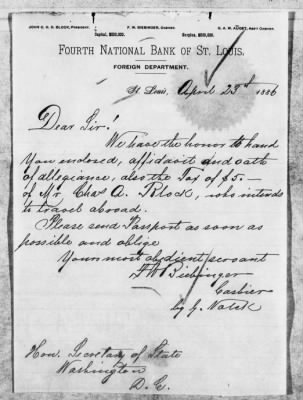 JOHN C. H. D. BLOCK, President.
F. W. BIEBINGER, Cashier.
G. A. W. AUGST, Ass't Cashier.
Capital, $500,000.
Surplus, $500,000.
FOURTH NATIONAL BANK OF ST. LOUIS.
FOREIGN DEPARTMENT.
St. Louis, April 23d 1886
Dear Sir!
We have the honor to hand
You enclosed, affidavit and oath
of allegiance, also the Tax of $5.–
of Mr. Chas A. Block, who intends
to travel abroad.
Please send Passport as soon as
possible and oblige
Your most obedient servant
F W Biebinger
Cashier
by G.
Hon. Secretary of State
Washington
D. C.